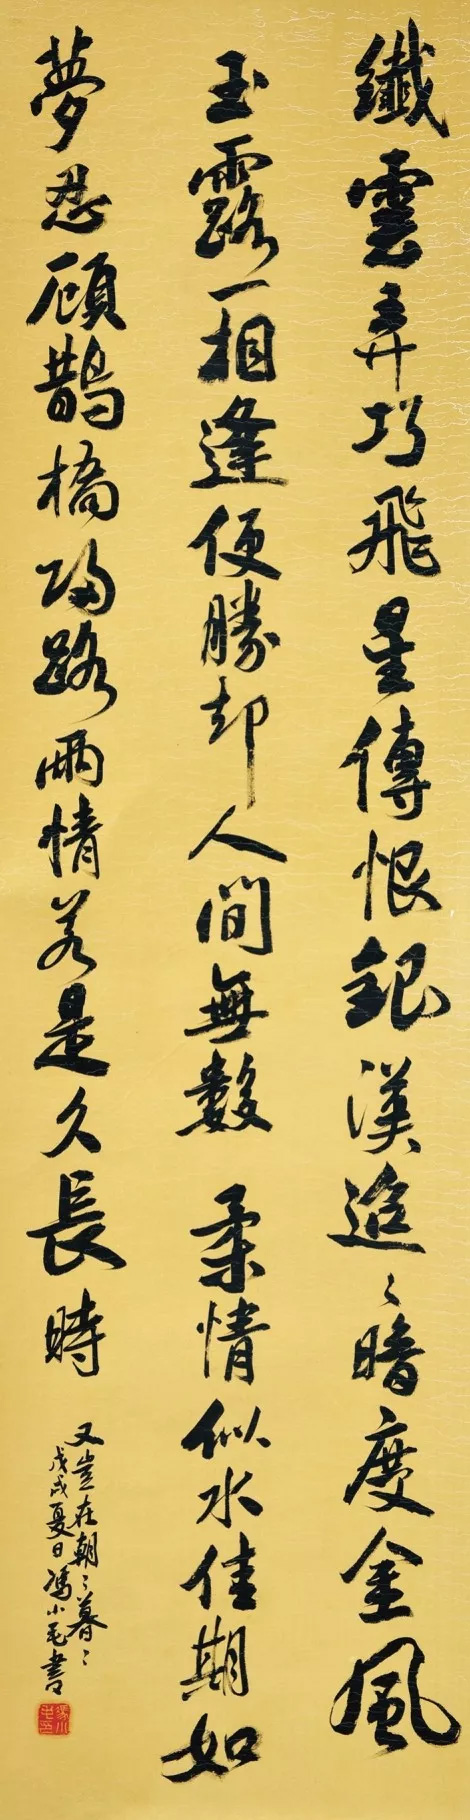 纖雲弄巧飛星傳恨銀漢迢〻暗度金風
玉露一相逢便勝却人間無數 柔情似水佳期如
夢忍顧鵲橋歸路兩情若是久長時
又豈在朝〻暮〻
戊戌夏日馮小毛書